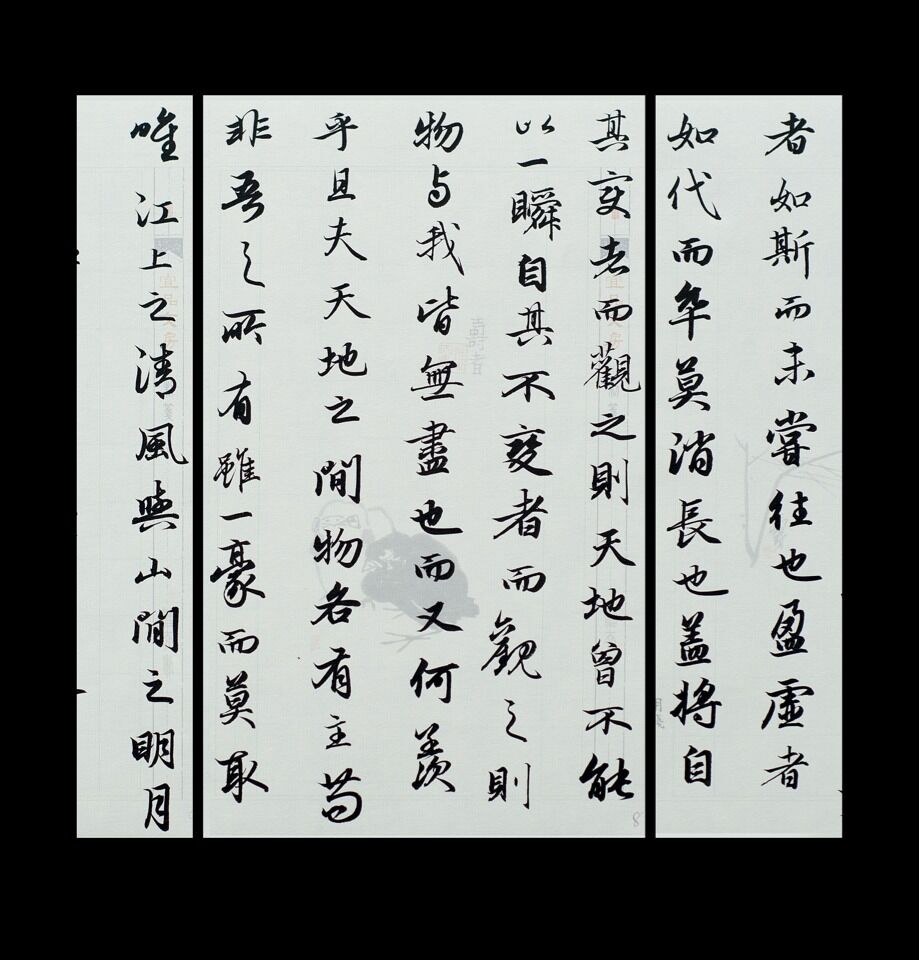 者如斯而未嘗往也盈虛者
如代而卒莫消長也蓋將自
其变者而觀之則天地曾不能
以一瞬自其不變者而觀之則
物与我皆無盡也而又何羨
乎且夫天地之間物各有主苟
非吾之所有雖一豪而莫取
唯江上之清風與山間之明月
8